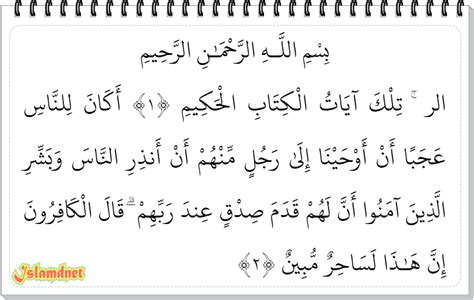 بِسْمِ اللَّـهِ الرَّحْمَـٰنِ الرَّحِيمِ
الر ۚ تِلْكَ آيَاتُ الْكِتَابِ الْحَكِيمِ ﴿١﴾ أَكَانَ لِلنَّاسِ
عَجَبًا أَنْ أَوْحَيْنَا إِلَىٰ رَجُلٍ مِّنْهُمْ أَنْ أَنذِرِ النَّاسَ وَبَشِّرِ
الَّذِينَ آمَنُوا أَنَّ لَهُمْ قَدَمَ صِدْقٍ عِندَ رَبِّهِمْ ۗ قَالَ الْكَافِرُونَ
إِنَّ هَـٰذَا لَسَاحِرٌ مُّبِينٌ ﴿٢﴾
Islamdnet